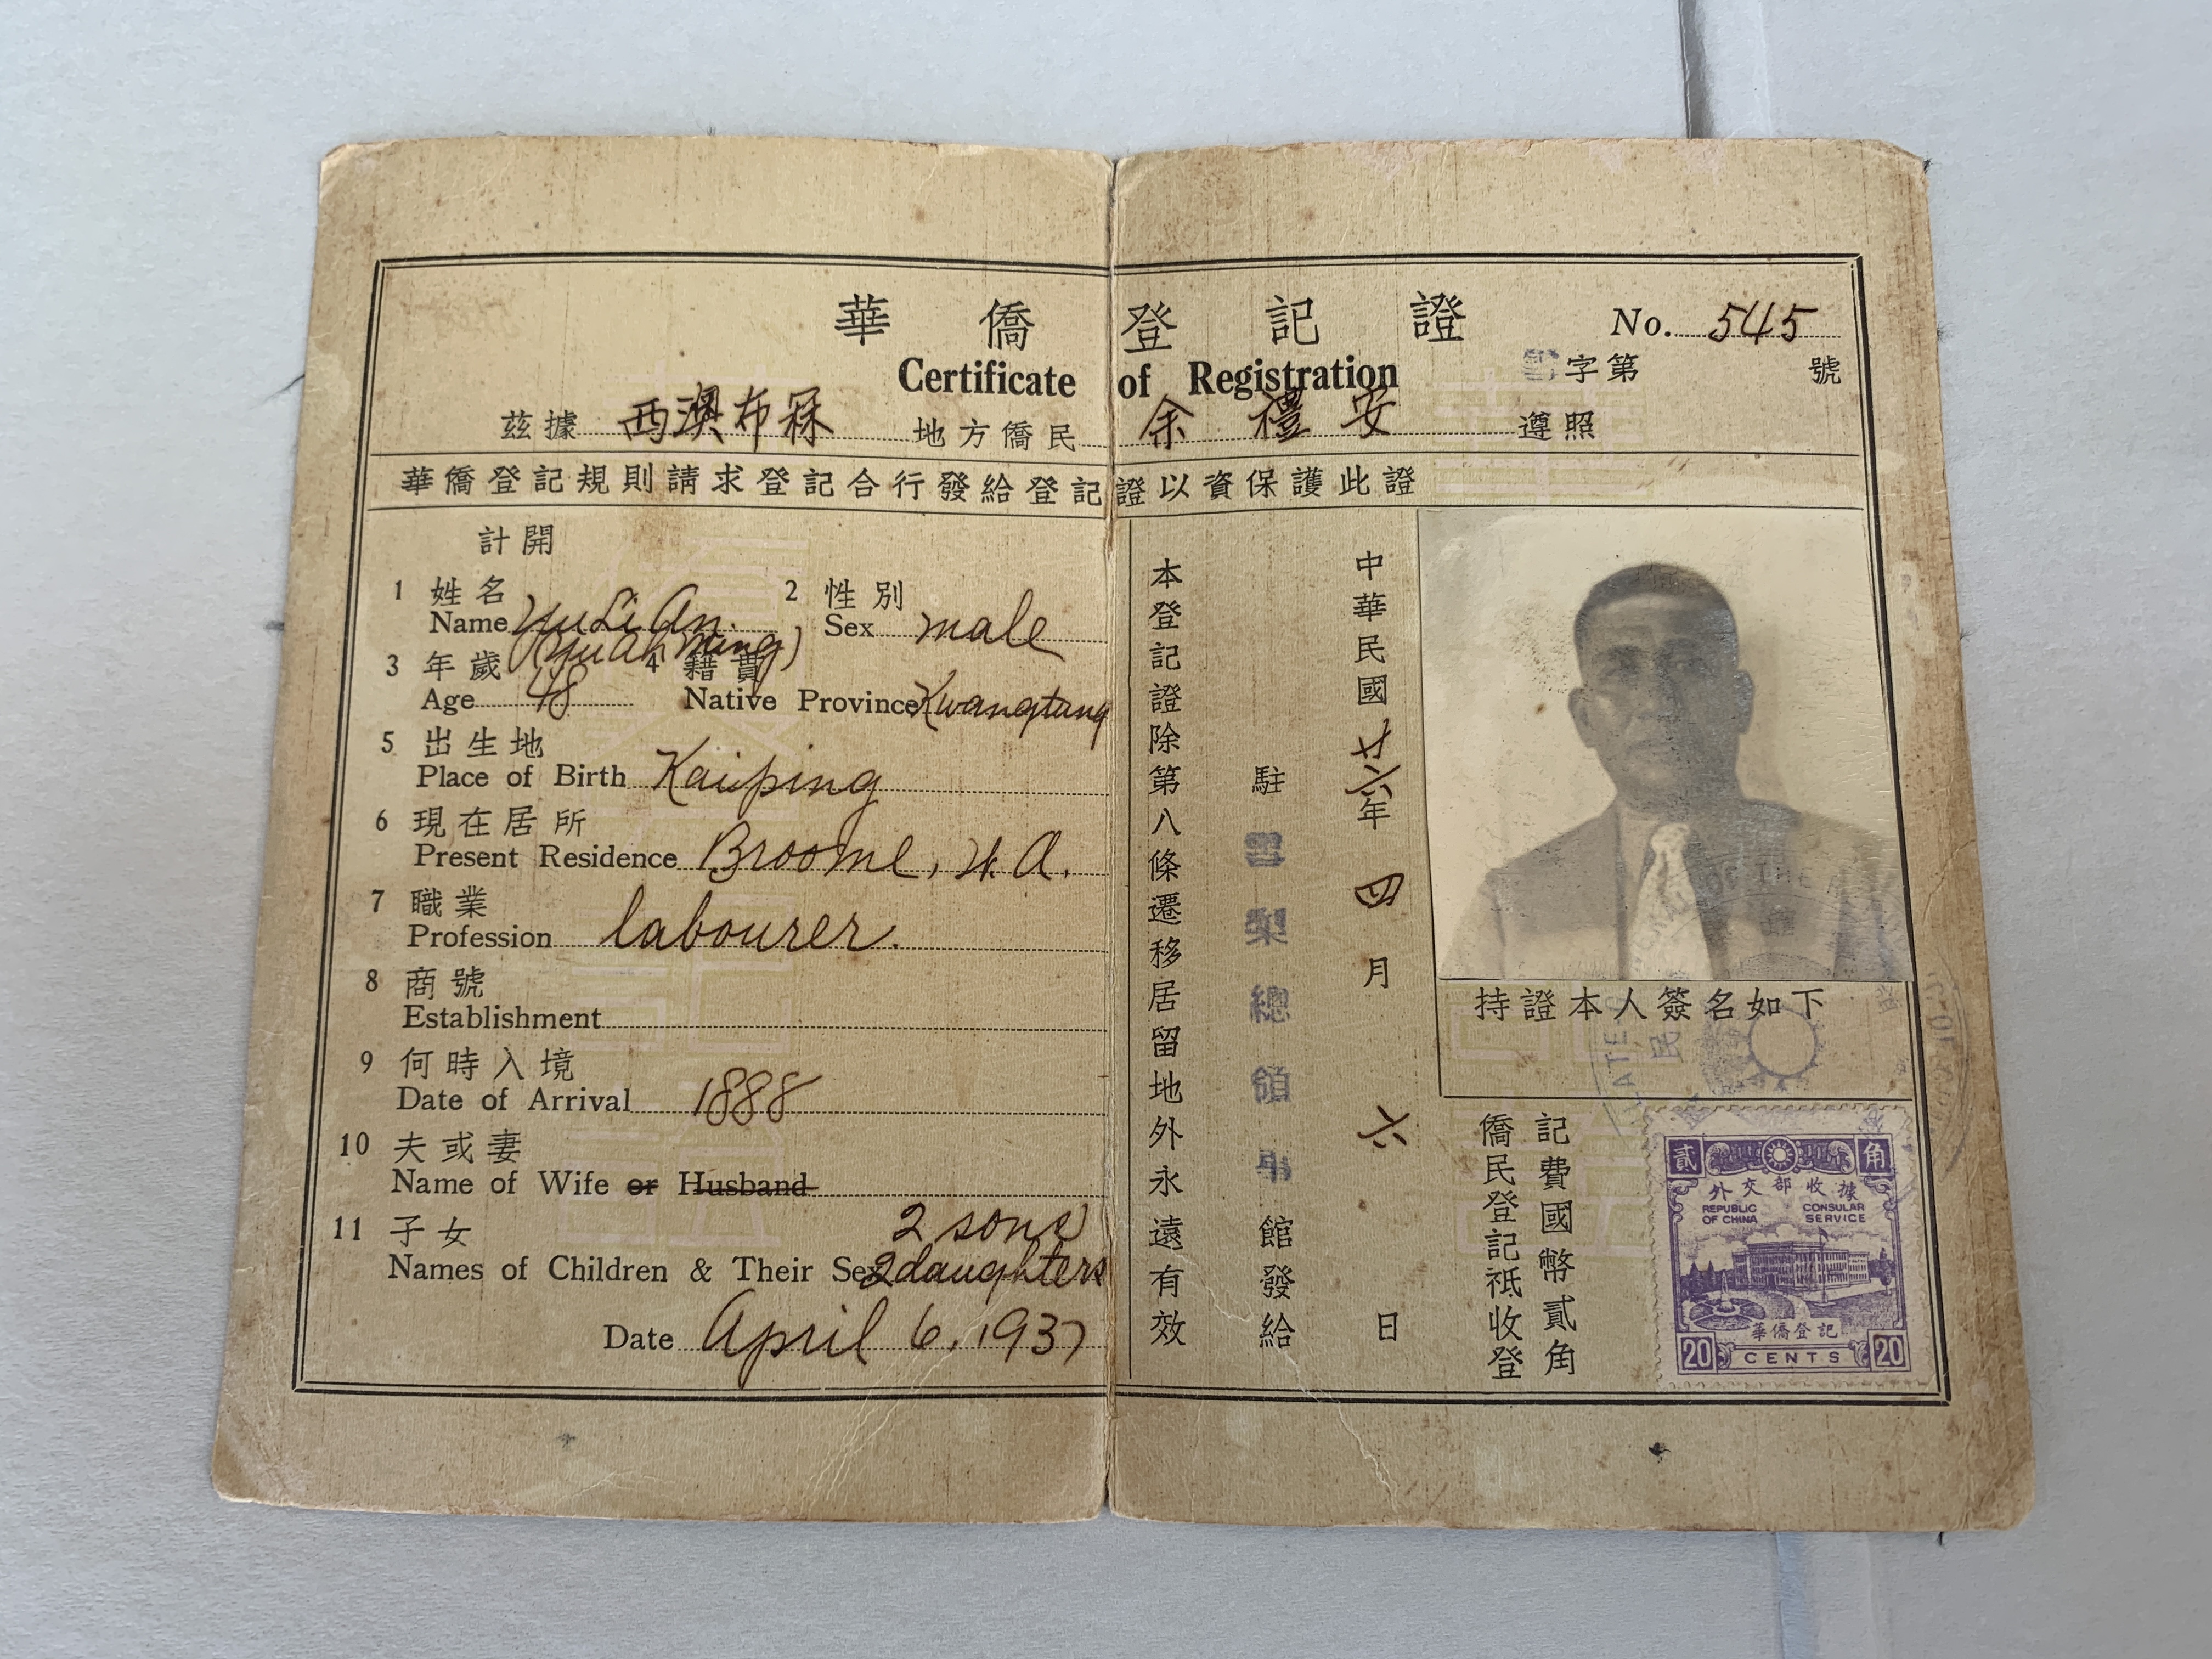 華僑登記證
No. 545
Certificate of Registration
雪字第 號
茲據 西澳布冧 地方僑民 余禮安 遵照
華僑登記規則請求登記合行發給登記證以資保護此證
計開
1 姓名 2 性別
Name Yu Li An. Sex male
(Yu Ah Ming)
3 年歲 4 籍貫
Age 48 Native Province Kwangtung
5 出生地
Place of Birth Kaiping
6 現在居所
Present Residence Broome, W. A.
7 職業
Profession labourer.
8 商號
Establishment
9 何時入境
Date of Arrival 1888
10 夫或妻
Name of Wife or Husband
11 子女 2 sons
Names of Children & Their Sex 2 daughters
Date April 6, 1937
本登記證除第八條遷移居留地外永遠有效
駐雪梨總領事館發給
中華民國廿六年四月六日
持證本人簽名如下
僑民登記祇收登
記費國幣貳角
貳 角
外交部收據
REPUBLIC OF CHINA
CONSULAR SERVICE
華僑登記
20 CENTS 20